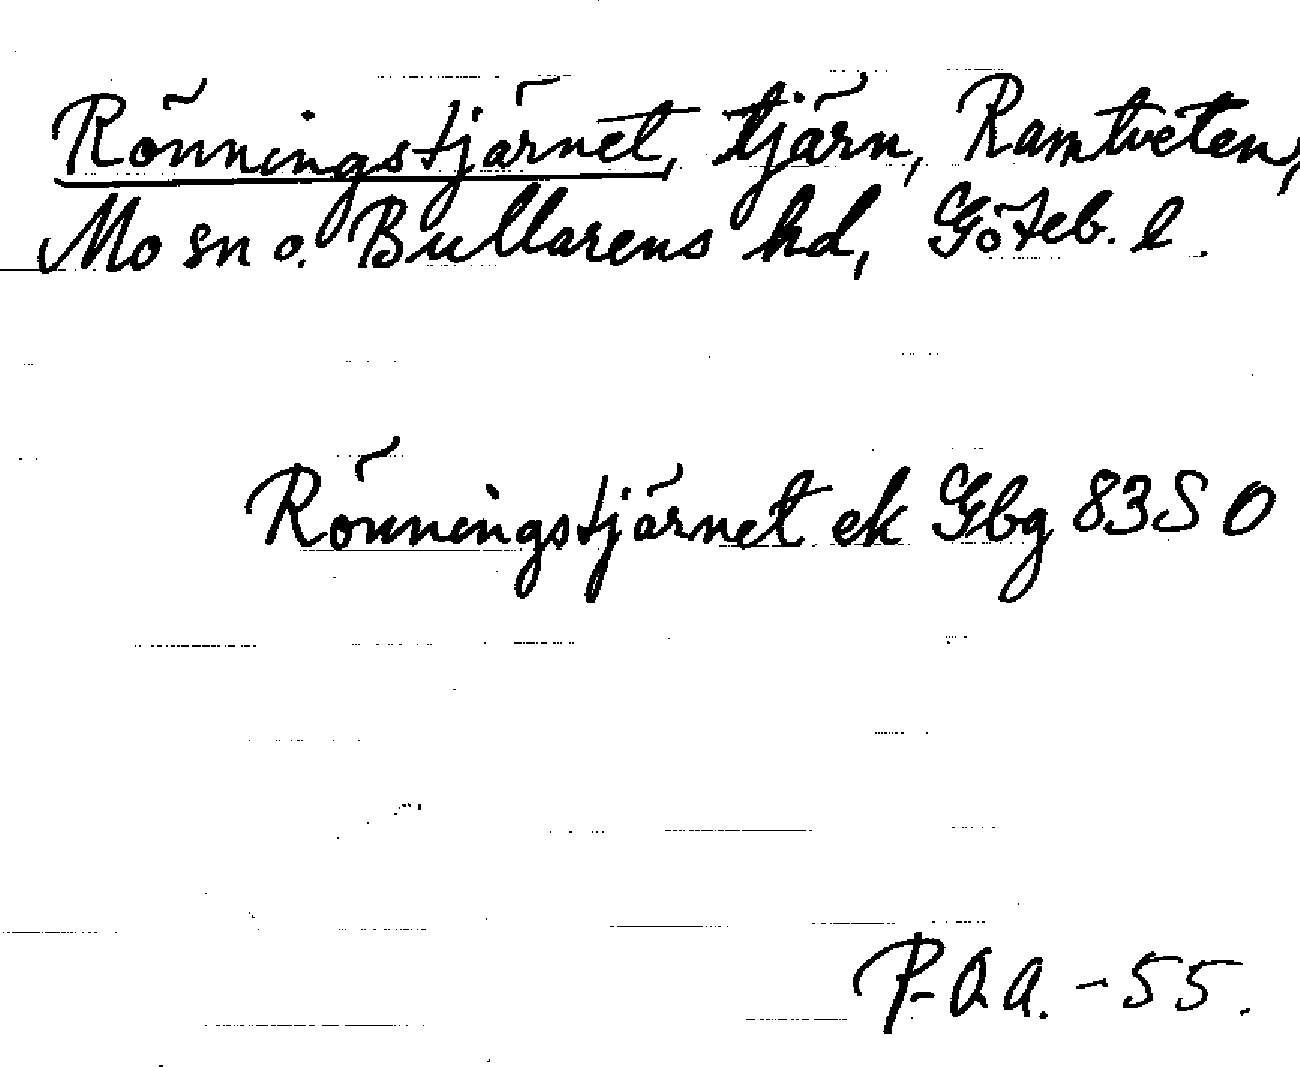 Rönningstjärnet, tjärn, Ramtveten,
Mo sn o. Bullarens hd, Göteb. l.
Rönningstjärnet ek Gbg 83S O
P-A A. - 55.